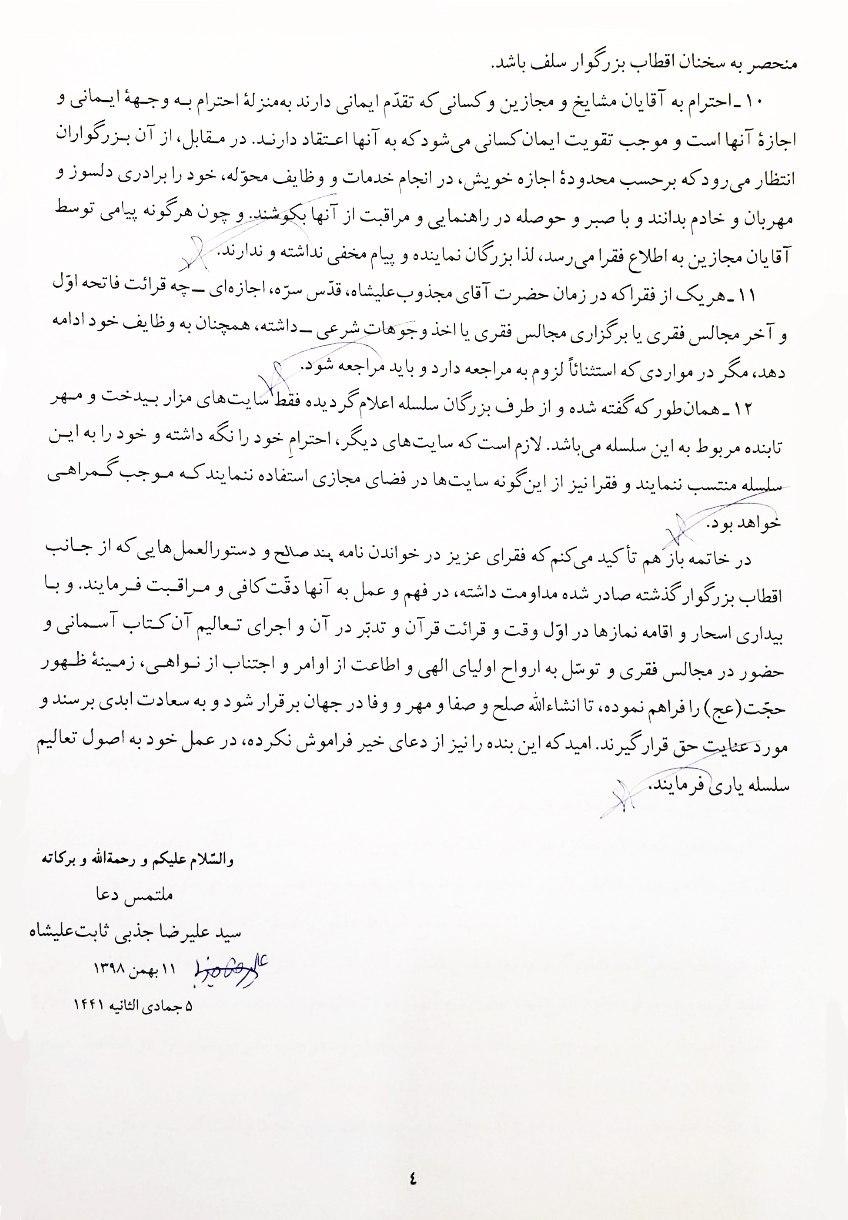 منحصر به سخنان اقطاب بزرگوار سلف باشد.
۱۰ـ احترام به آقایان مشایخ و مجازین و کسانی که تقدّم ایمانی دارند به‌منزلهٔ احترام به وجههٔ ایمانی و
اجازهٔ آنها است و موجب تقویت ایمان کسانی می‌شود که به آنها اعتقاد دارند. در مقابل، از آن بزرگواران
انتظار می‌رود که برحسب محدودهٔ اجازه خویش، در انجام خدمات و وظایف محوّله، خود را برادری دلسوز و
مهربان و خادم بدانند و با صبر و حوصله در راهنمایی و مراقبت از آنها بکوشند. و چون هرگونه پیامی توسط
آقایان مجازین به اطلاع فقرا می‌رسد، لذا بزرگان نماینده و پیام مخفی نداشته و ندارند.
۱۱ـ هر یک از فقرا که در زمان حضرت آقای مجذوب‌علیشاه، قدّس سرّه، اجازه‌ای ــ چه قرائت فاتحه اوّل
و آخر مجالس فقری یا برگزاری مجالس فقری یا اخذ وجوهات شرعی ــ داشته، همچنان به وظایف خود ادامه
دهد، مگر در مواردی که استثنائاً لزوم به مراجعه دارد و باید مراجعه شود.
۱۲ـ همان‌طور که گفته شده و از طرف بزرگان سلسله اعلام گردیده فقط سایت‌های مزار بیدخت و مهر
تابنده مربوط به این سلسله می‌باشد. لازم است که سایت‌های دیگر، احترامِ خود را نگه داشته و خود را به این
سلسله منتسب ننمایند و فقرا نیز از این‌گونه سایت‌ها در فضای مجازی استفاده ننمایند که موجب گمراهی
خواهد بود.
در خاتمه باز هم تأکید می‌کنم که فقرای عزیز در خواندن نامه پند صالح و دستورالعمل‌هایی که از جانب
اقطاب بزرگوار گذشته صادر شده مداومت داشته، در فهم و عمل به آنها دقّت کافی و مراقبت فرمایند. و با
بیداری اسحار و اقامه نمازها در اوّل وقت و قرائت قرآن و تدبّر در آن و اجرای تعالیم آن کتاب آسمانی و
حضور در مجالس فقری و توسّل به ارواح اولیای الهی و اطاعت از اوامر و اجتناب از نواهی، زمینهٔ ظهور
حجّت(عج) را فراهم نموده، تا انشاءالله صلح و صفا و مهر و وفا در جهان برقرار شود و به سعادت ابدی برسند و
مورد عنایت حق قرار گیرند. امید که این بنده را نیز از دعای خیر فراموش نکرده، در عمل خود به اصول تعالیم
سلسله یاری فرمایند.
والسّلام علیکم و رحمةالله و برکاته
ملتمس دعا
سید علیرضا جذبی ثابت‌علیشاه
۱۱ بهمن ۱۳۹۸
۵ جمادی الثانیه ۱۴۴۱
٤